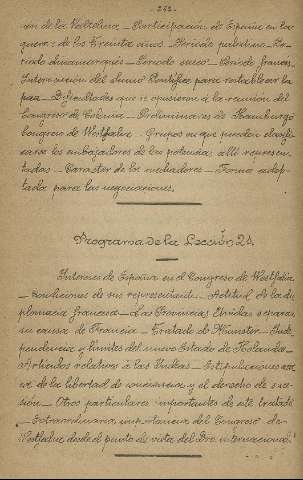 262.
ión de la Valtelina — Participación de España en la
guerra de los Treinta años — Período palatino — Pe-
riodo dinamarqués — Período sueco — Período francés —
Intervención del Sumo Pontífice para restablecer la
paz — Dificultades que se opusieron a la reunión del
Congreso de Colonia — Preliminares de Hamburgo
Congreso de Westfalia — Grupos en que pueden clasifi-
carse los embajadores de las potencias allí represen-
tadas — Carácter de los mediadores — Forma adop-
tada para las negociaciones.
Programa de la Lección 24.
Intereses de España en el Congreso de Westfalia
— Condiciones de sus representantes — Actitud de la di-
plomacia francesa — Las Provincias Unidas separan
su causa de Francia — Tratado de Munster — Inde-
pendencia y límites del nuevo Estado de Holanda —
Artículos relativos a las Indias — Estipulaciones acer-
ca de la libertad de conciencia y el derecho de suce-
sión — Otros particulares importantes de este tratado
— Extraordinaria importancia del Congreso de
Westfalia desde el punto de vista del Dro. internacional.